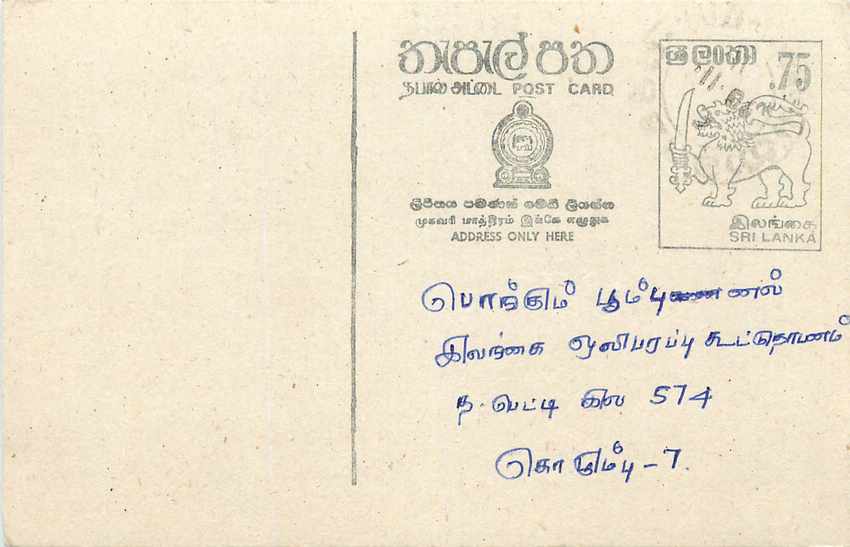 තැපැල් පත
தபால் அட்டை POST CARD
ලිපිනය පමණක් මෙහි ලියන්න
முகவரி மாத்திரம் இங்கே எழுதுக
ADDRESS ONLY HERE
ශ්‍රී ලංකා .75
இலங்கை
SRI LANKA
பொங்கும் பூம்புனல்
இலங்கை ஒலிபரப்பு கூட்டுதாபனம்
த. பெட்டி இல 574
கொழும்பு - 7.